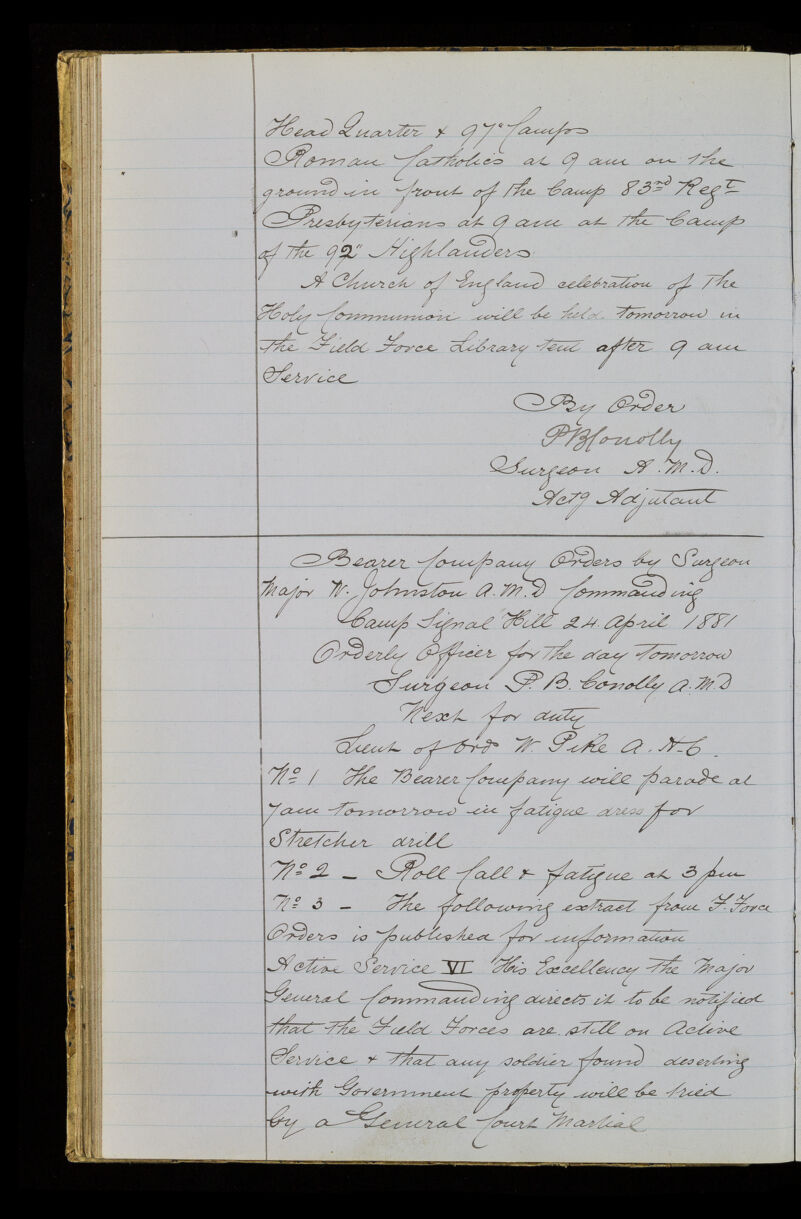 Head Quarter & 97" Camps
Roman Catholics at 9 am on the
ground in front of the Camp 83rd Regt
Presbyterians at 9 am at the Camp
of the 92" Highlanders
A Church of England celebration of The
Holy Communion will be held tomorrow in
the Field Force Library tent after 9 am
Service
By Order
P B Conolly
Surgeon A.M.D.
Actg Adjutant
Bearer Company Orders by Surgeon
Major W. Johnston A.M.D Commanding
Camp Signal Hill 24 April 1881
Orderly Officer for the day tomorrow
Surgeon P. B. Conolly A.M.D
Next for duty
Lieut of Ords W. Pike A.H.C.
No 1 The Bearer Company will parade at
7am tomorrow in fatigue dress for
Stretcher drill
No 2 - Roll Call & fatigue at 3 pm
No 3 - The following extract from F. Force
Orders is published for information
Active Service VI His Excellency the Major
General Commanding directs it to be notified
that the Field Forces are still on Active
Service & that any soldier found deserting
with Government property will be tried
by a General Court Martial